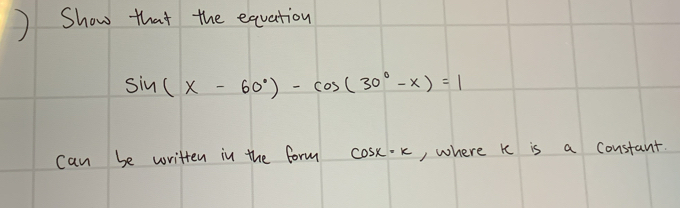 ) Show that the equation
sin(x - 60°) - cos(30° - x) = 1
can be written in the form cosx = k, where k is a constant.